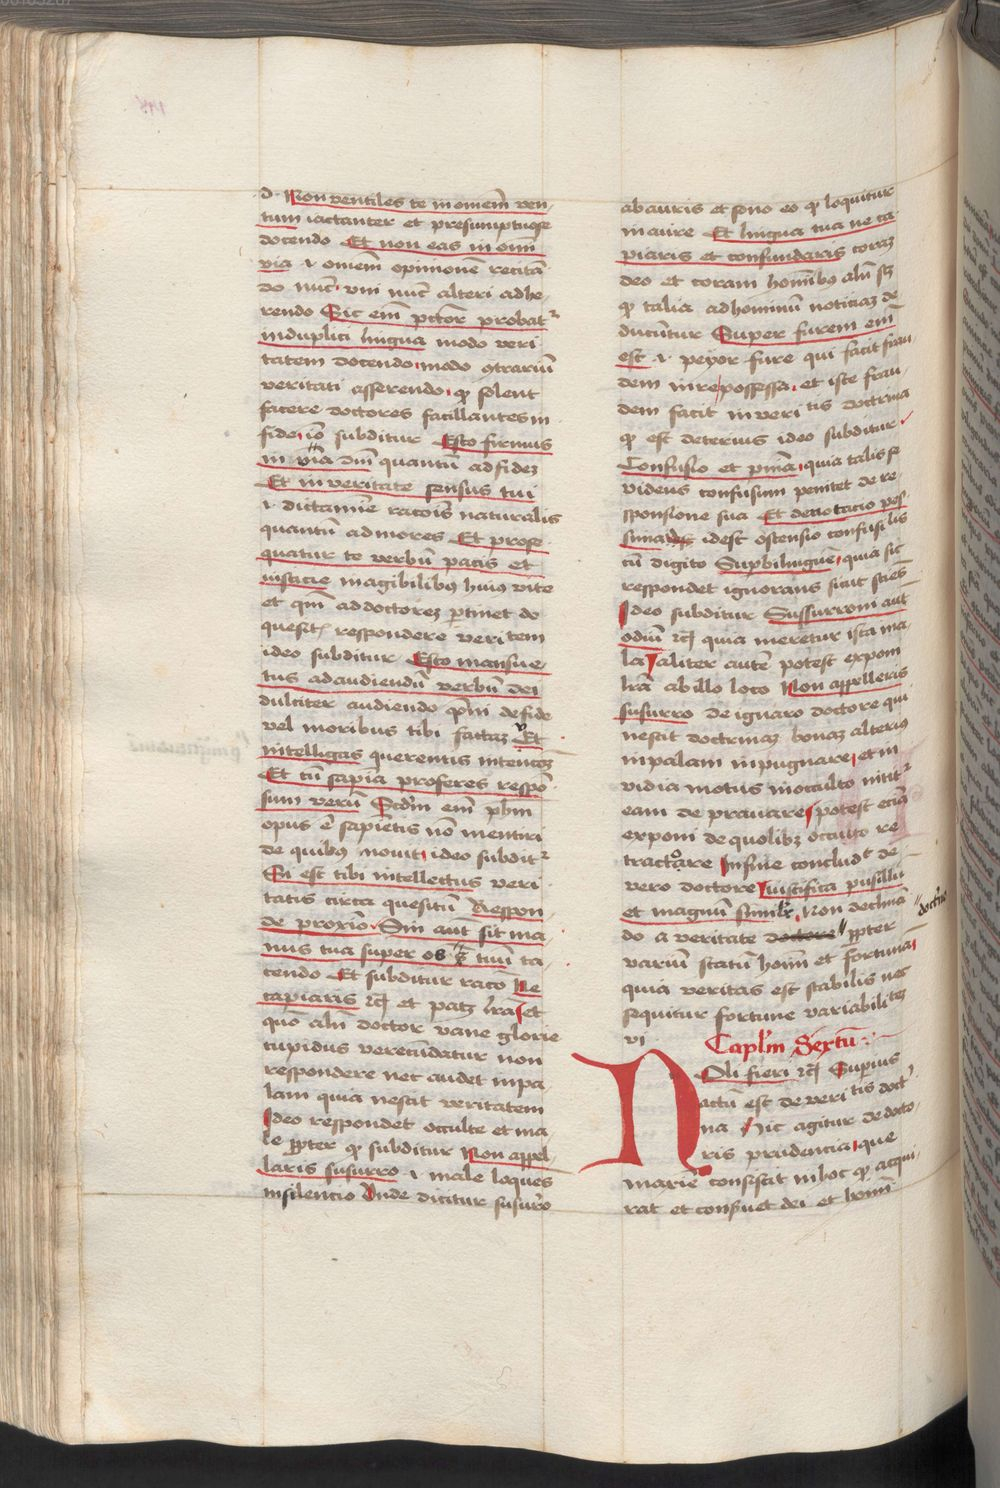 d. Non ventiles te in omnem ven
tum iactanter et presumptuose
docendo Et non eas in omni
via .i. omnem opinionē recitā
do nūc uni nūc alteri adhe-
rendo Sic enī pctor probat
in duplici lingua modo veri
tatem docendo modo ɔtrariū
veritati asserendo qd solent
facere doctores facillantes in
fide iō subditur Esto firmus
in via dni quantū ad fidez
Et in veritate sensus tui
.i. dictamie racois naturalis
quantū ad mores Et prose
quatur te verbū pacis et
iusticie in agibilibus huius vite
et qm ad doctorez ptinet de
quesitis respondere veritatem
ideo subditur Esto mansue
tus ad audiendū verbū dei
dulciter audiendo de fide
vel moribus tibi factaz Et
intelligas querentis intencōez
Et cū sapia proferes respō
sum verū Scdm enī phm
opus ē sapietis nō mentiri
de quibus novit ideo subditr
Si est tibi intellectus veri
tatis circa quesitū Respon
de proximo Sin autē sit ma
nus tua super os tuū ta
cendo Et subditur racō Ne
capiaris rcͣ et patz lrā et
quō aln doctor vane glorie
cupidus verecūdatur non
respondere nec audet in pa
lam quia nescit veritatem
Ideo respondet occulte et ma
le ppter qd subditur Non appel
laris susurro .i. male loquēs
in silencio Unde dicitur susurro
ab auris et sono eo qd loquitur
in aure Et lingua tua ne ca
piaris et confundaris coraz
deo et coram hominibus
qd talia ad hominū noticiaz de
ducūtur Super furem enī
est .i. peyor fure qui facit frau
dem in re possessa et iste frau
dem facit in veritatis doctrina
qd est deterius ideo subditur
Confusio et pnīa quia talis se
videns confusum penitet de re
sponsione sua Et denotacio pes
sima idest ostensio confusibilis
cū digito Sup bilinguē quia sic
respondet ignorans sicut sciēs
Ideo subditur Sussurroni autē
odiū rcͣ quia meretur ista ma
la aliter autē potest exponi
lrā ab illo loco Non appelleris
susurro de ignaro doctore qui
nescit doctrinaz bonaz alterius
in palam inpugnare et in
vidia motus in occulto nititr
eam de pravitare potest eciā
exponi de quolibz occulto re
tractatore In fine concludit de
vero doctore iustifica pusillū
et magnū similr Non declinā
do a veritate doctore ppter
doctrīe
variū statū hoīm et fortunā
quia veritas est stabilis nec
sequitur fortune variabilitez
vi Caplm Sextū
Noli fieri rcͣ Superius
actū est de veritatis doct
na Hic agitur de docto
ris prudencia que
maxīe consistit in hoc qd acqui
rat et conservet dei et hoīm